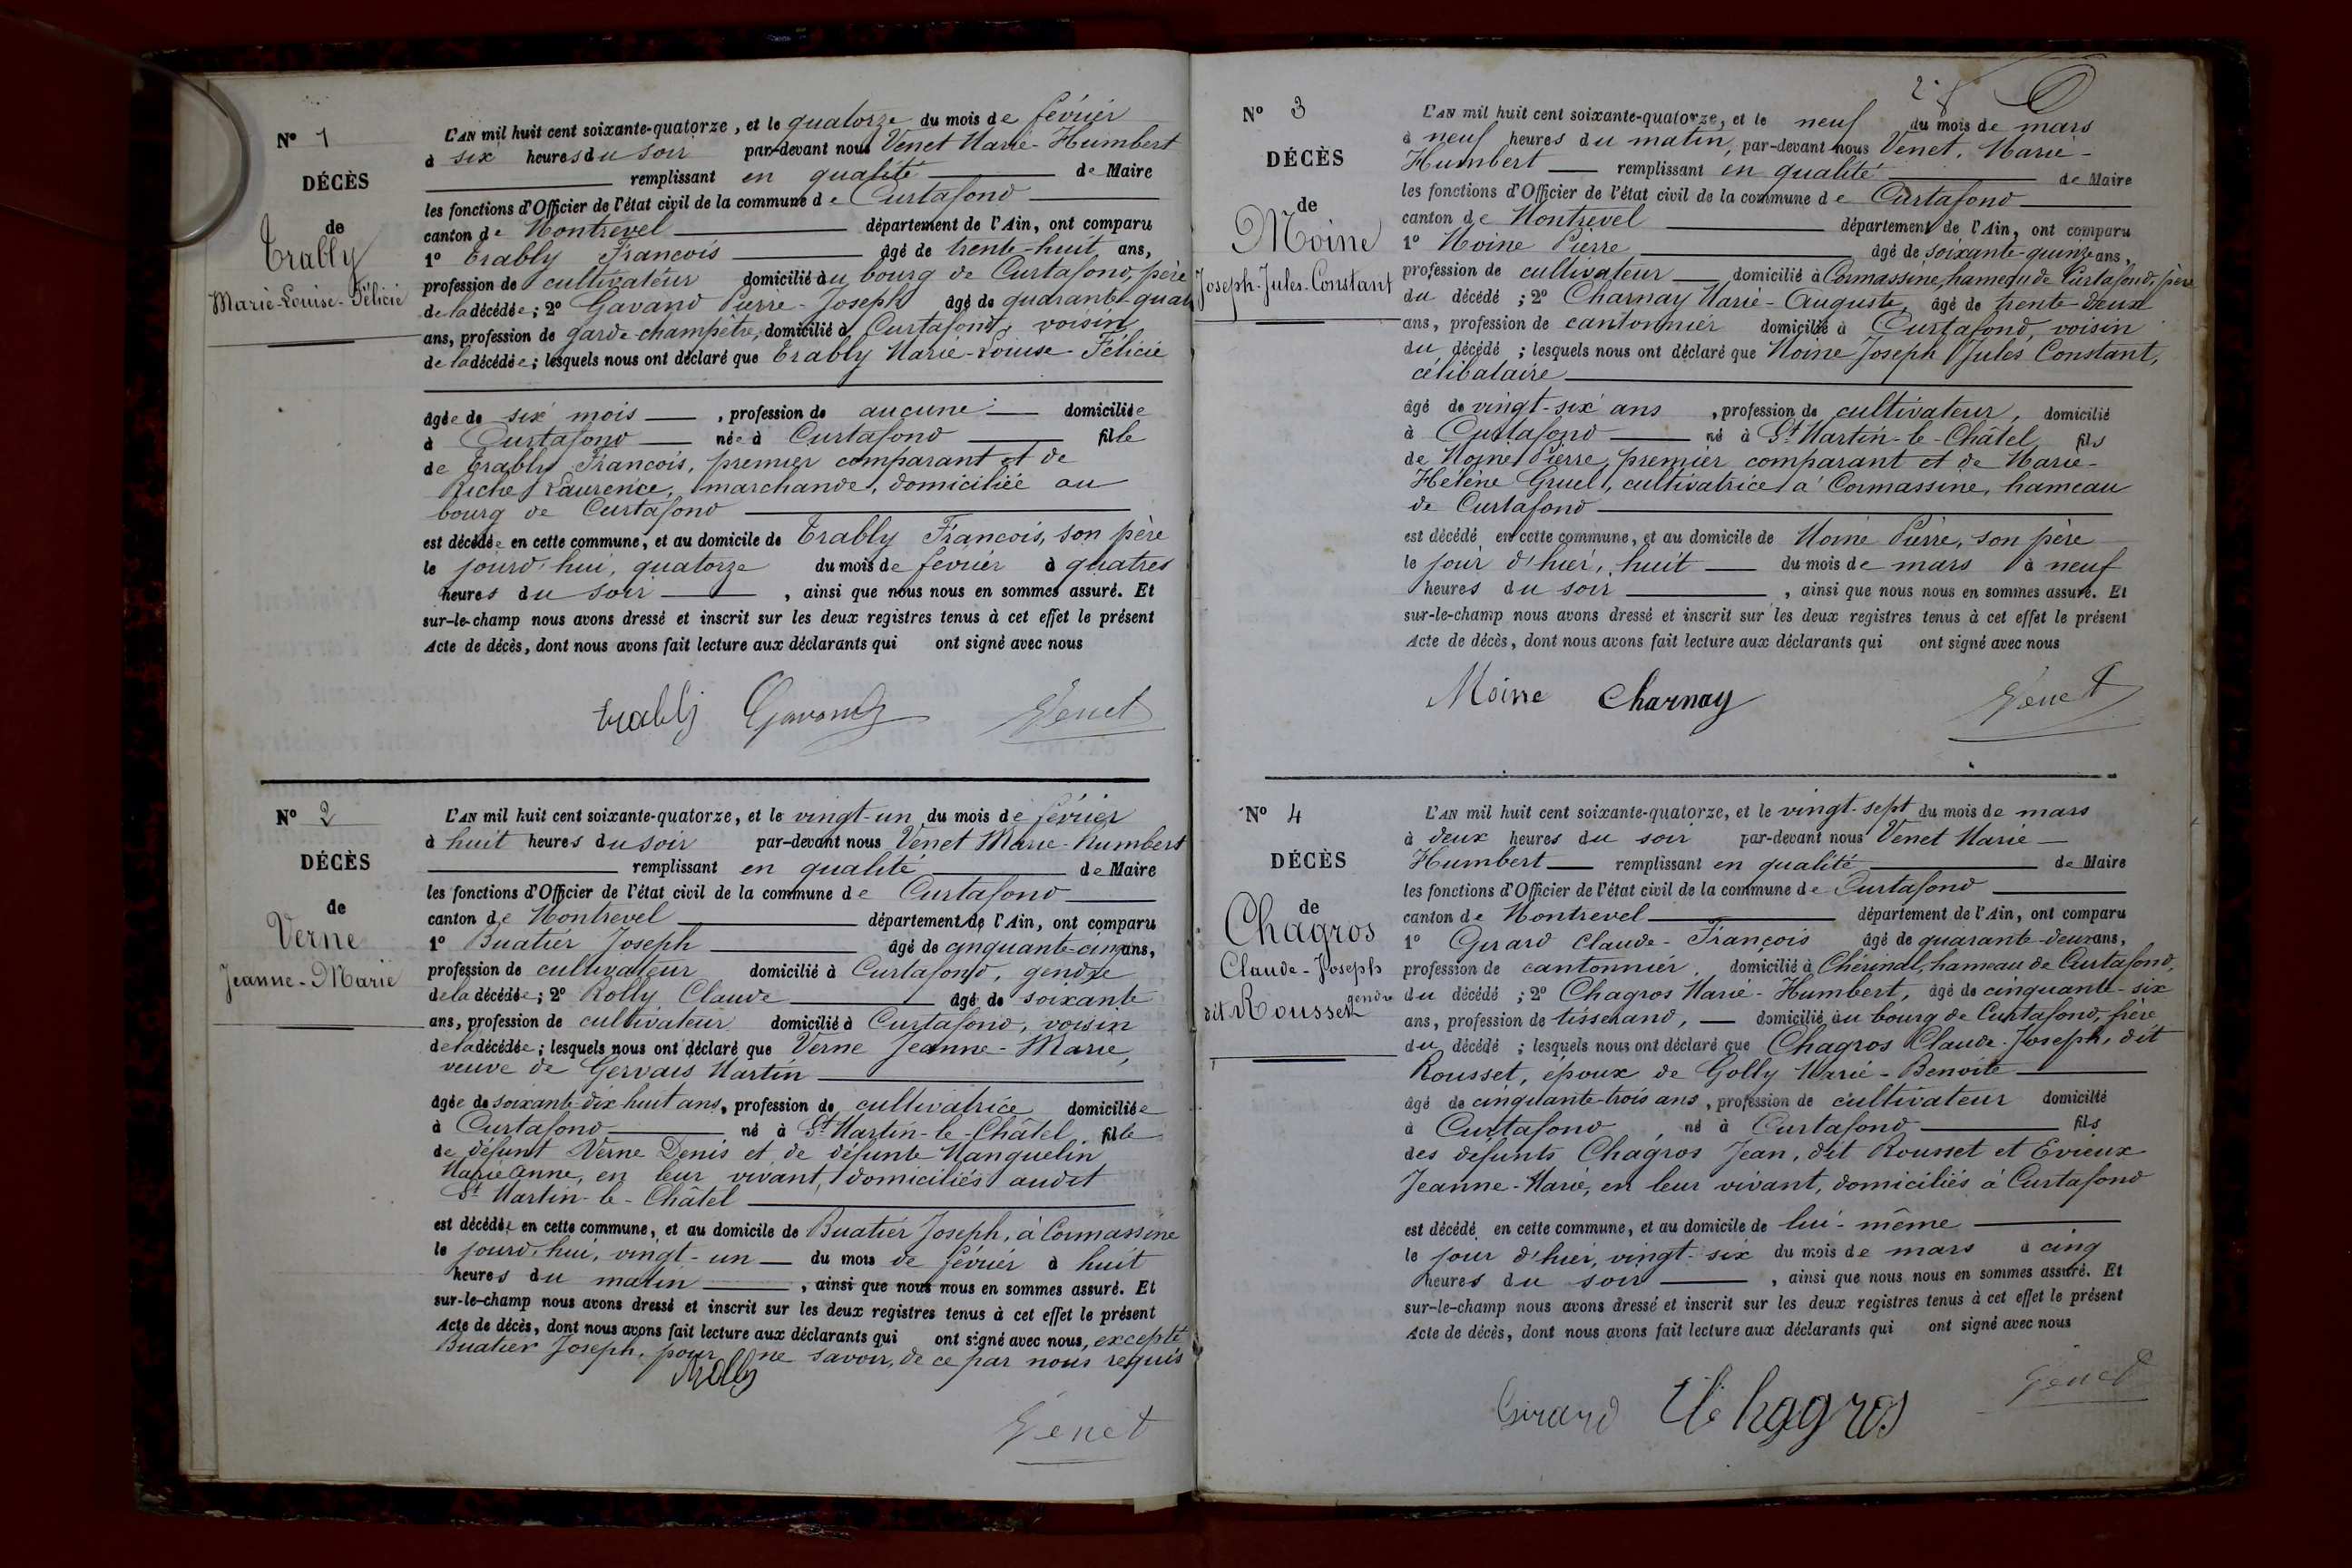 Nº 1
DÉCÈS
de
Trably
Marie-Louise-Félicie
L'AN mil huit cent soixante-quatorze, et le quatorze du mois de février
à six heures du soir par-devant nous Venet Marie-Humbert
remplissant en qualité de Maire
les fonctions d'Officier de l'état civil de la commune de Curtafond
canton de Montrevel département de l'Ain, ont comparu
1º Trably Francois âgé de trente-huit ans,
profession de cultivateur domicilié au bourg de Curtafond, père
de la décédée; 2º Gavand Pierre-Joseph âgé de quarante-quat
ans, profession de garde-champêtre, domicilié à Curtafond, voisin
de la décédée; lesquels nous ont déclaré que Trably Marie-Louise-Félicie
âgée de six mois, profession de aucune domiciliée
à Curtafond née à Curtafond fille
de Trably Francois, premier comparant et de
Riche Laurence, marchande, domiciliée au
bourg de Curtafond
est décédée en cette commune, et au domicile de Trably Francois, son père
le jourd'hui, quatorze du mois de février à quatres
heures du soir, ainsi que nous nous en sommes assuré. Et
sur-le-champ nous avons dressé et inscrit sur les deux registres tenus à cet effet le présent
Acte de décès, dont nous avons fait lecture aux déclarants qui ont signé avec nous
trably Gavand Venet
Nº 2
DÉCÈS
de
Verne
Jeanne-Marie
L'AN mil huit cent soixante-quatorze, et le vingt-un du mois de février
à huit heures du soir par-devant nous Venet Marie-humbert
remplissant en qualité de Maire
les fonctions d'Officier de l'état civil de la commune de Curtafond
canton de Montrevel département de l'Ain, ont comparu
1º Buatier Joseph âgé de cinquante-cinq ans,
profession de cultivateur domicilié à Curtafond, gendre
de la décédée; 2º Rolly Claude âgé de soixante
ans, profession de cultivateur domicilié à Curtafond, voisin
de la décédée; lesquels nous ont déclaré que Verne Jeanne-Marie,
veuve de Gervais Martin
âgée de soixante-dix huit ans, profession de cultivatrice domiciliée
à Curtafond né à St Martin-le-Châtel fille
de défunt Verne Denis et de défunte Manguelin
Marie Anne, en leur vivant, domiciliés audit
St Martin-le-Châtel
est décédée en cette commune, et au domicile de Buatier Joseph, à Cormassine
le jourd'hui, vingt-un du mois de février à huit
heures du matin, ainsi que nous nous en sommes assuré. Et
sur-le-champ nous avons dressé et inscrit sur les deux registres tenus à cet effet le présent
Acte de décès, dont nous avons fait lecture aux déclarants qui ont signé avec nous, excepté
Buatier Joseph, pour ne savoir, de ce par nous requis
Rolly
Venet
Nº 3
DÉCÈS
de
Moine
Joseph-Jules-Constant
L'AN mil huit cent soixante-quatorze, et le neuf du mois de mars
à neuf heures du matin, par-devant nous Venet, Marie-
Humbert remplissant en qualité de Maire
les fonctions d'Officier de l'état civil de la commune de Curtafond
canton de Montrevel département de l'Ain, ont comparu
1º Moine Pierre âgé de soixante-quinze ans,
profession de cultivateur domicilié à Cormassine, hameau de Curtafond, père
du décédé; 2º Charnay Marie-Auguste, âgé de trente-deux
ans, profession de cantonnier domicilié à Curtafond, voisin
du décédé; lesquels nous ont déclaré que Moine Joseph Jules Constant,
célibataire
âgé de vingt-six ans, profession de cultivateur, domicilié
à Curtafond né à St Martin-le-Châtel, fils
de Moine Pierre, premier comparant et de Marie-
Hélène Gruel, cultivatrice, à Cormassine, hameau
de Curtafond
est décédé en cette commune, et au domicile de Moine Pierre, son père
le jour d'hier, huit du mois de mars à neuf
heures du soir, ainsi que nous nous en sommes assuré. Et
sur-le-champ nous avons dressé et inscrit sur les deux registres tenus à cet effet le présent
Acte de décès, dont nous avons fait lecture aux déclarants qui ont signé avec nous
Moine Charnay Venet
Nº 4
DÉCÈS
de
Chagros
Claude-Joseph
dit Rousset
L'AN mil huit cent soixante-quatorze, et le vingt-sept du mois de mars
à deux heures du soir par-devant nous Venet Marie
Humbert remplissant en qualité de Maire
les fonctions d'Officier de l'état civil de la commune de Curtafond
canton de Montrevel département de l'Ain, ont comparu
1º Girard Claude-François âgé de quarante-deux ans,
profession de cantonnier, domicilié à Chérinal, hameau de Curtafond,
gendre du décédé; 2º Chagros Marie-Humbert, âgé de cinquante-six
ans, profession de tisserand, domicilié au bourg de Curtafond, frère
du décédé; lesquels nous ont déclaré que Chagros Claude-Joseph, dit
Rousset, époux de Golly Marie-Benoîte
âgé de cinquante-trois ans, profession de cultivateur domicilié
à Curtafond, né à Curtafond fils
des défunts Chagros Jean, dit Rousset et Evieux
Jeanne-Marie, en leur vivant, domiciliés à Curtafond
est décédé en cette commune, et au domicile de lui-même
le jour d'hier, vingt-six du mois de mars à cinq
heures du soir, ainsi que nous nous en sommes assuré. Et
sur-le-champ nous avons dressé et inscrit sur les deux registres tenus à cet effet le présent
Acte de décès, dont nous avons fait lecture aux déclarants qui ont signé avec nous
Girard Chagros Venet